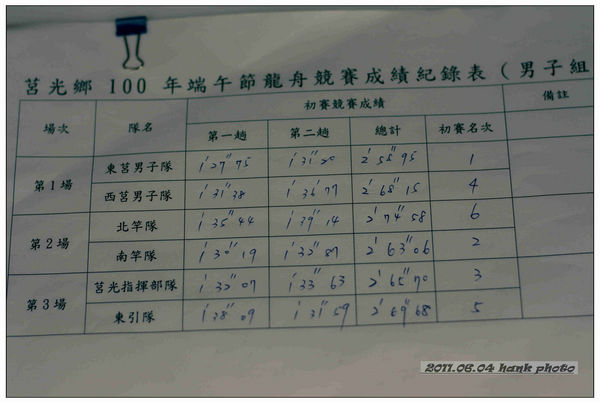 莒光鄉 100 年端午節龍舟競賽成績紀錄表（男子組
場次 隊名 初賽競賽成績 備註
第一趟 第二趟 總計 初賽名次
第1場 東莒男子隊 1'27"75 1'31"20 2'58"95 1
西莒男子隊 1'31"38 1'36"77 2'68"15 4
第2場 北竿隊 1'35"44 1'39"14 2'74"58 6
南竿隊 1'30"19 1'32"87 2'63"06 2
第3場 莒光指揮部隊 1'32"07 1'33"63 2'65"70 3
東引隊 1'38"09 1'31"59 2'69"68 5
2011.06.04 hank photo